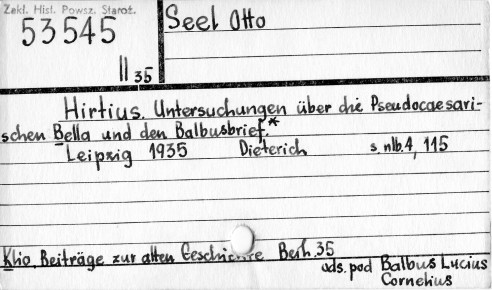 Zakł. Hist. Powsz. Staroż.
53545
II 35
Seel Otto
Hirtius. Untersuchungen über die Pseudocaesari-
schen Bella und den Balbusbrief.*
Leipzig 1935 Dieterich s. nlb. 4, 115
Klio. Beiträge zur alten Geschichte Beih. 35
ods. pod Balbus Lucius
Cornelius